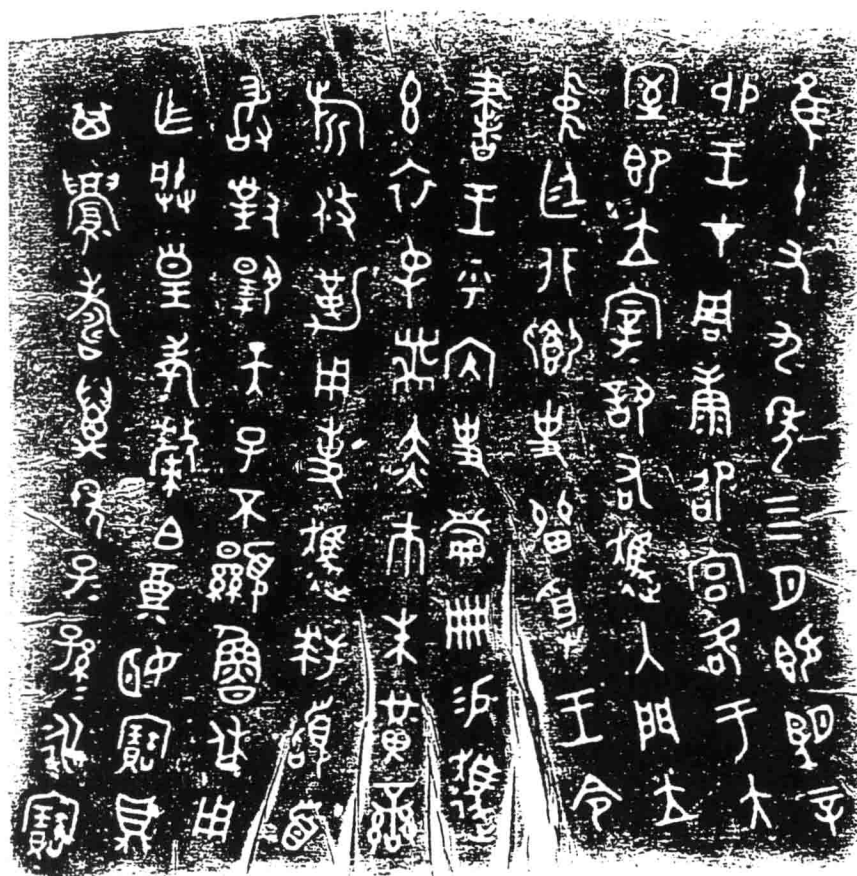 隹十又九年亖月既望辛
卯王才周康卲宮各于大
室即立宰訊右趞入門立
中廷北鄉史留受王令
書王乎內史冊易趞
玄衣屯黹赤巿朱黃䜌
旂攸勒用事趞拜𩒨首
敢對揚天子不顯魯休用
乍朕皇考斄白奠姬寶鼎
其眉壽萬年子=孫=永寶